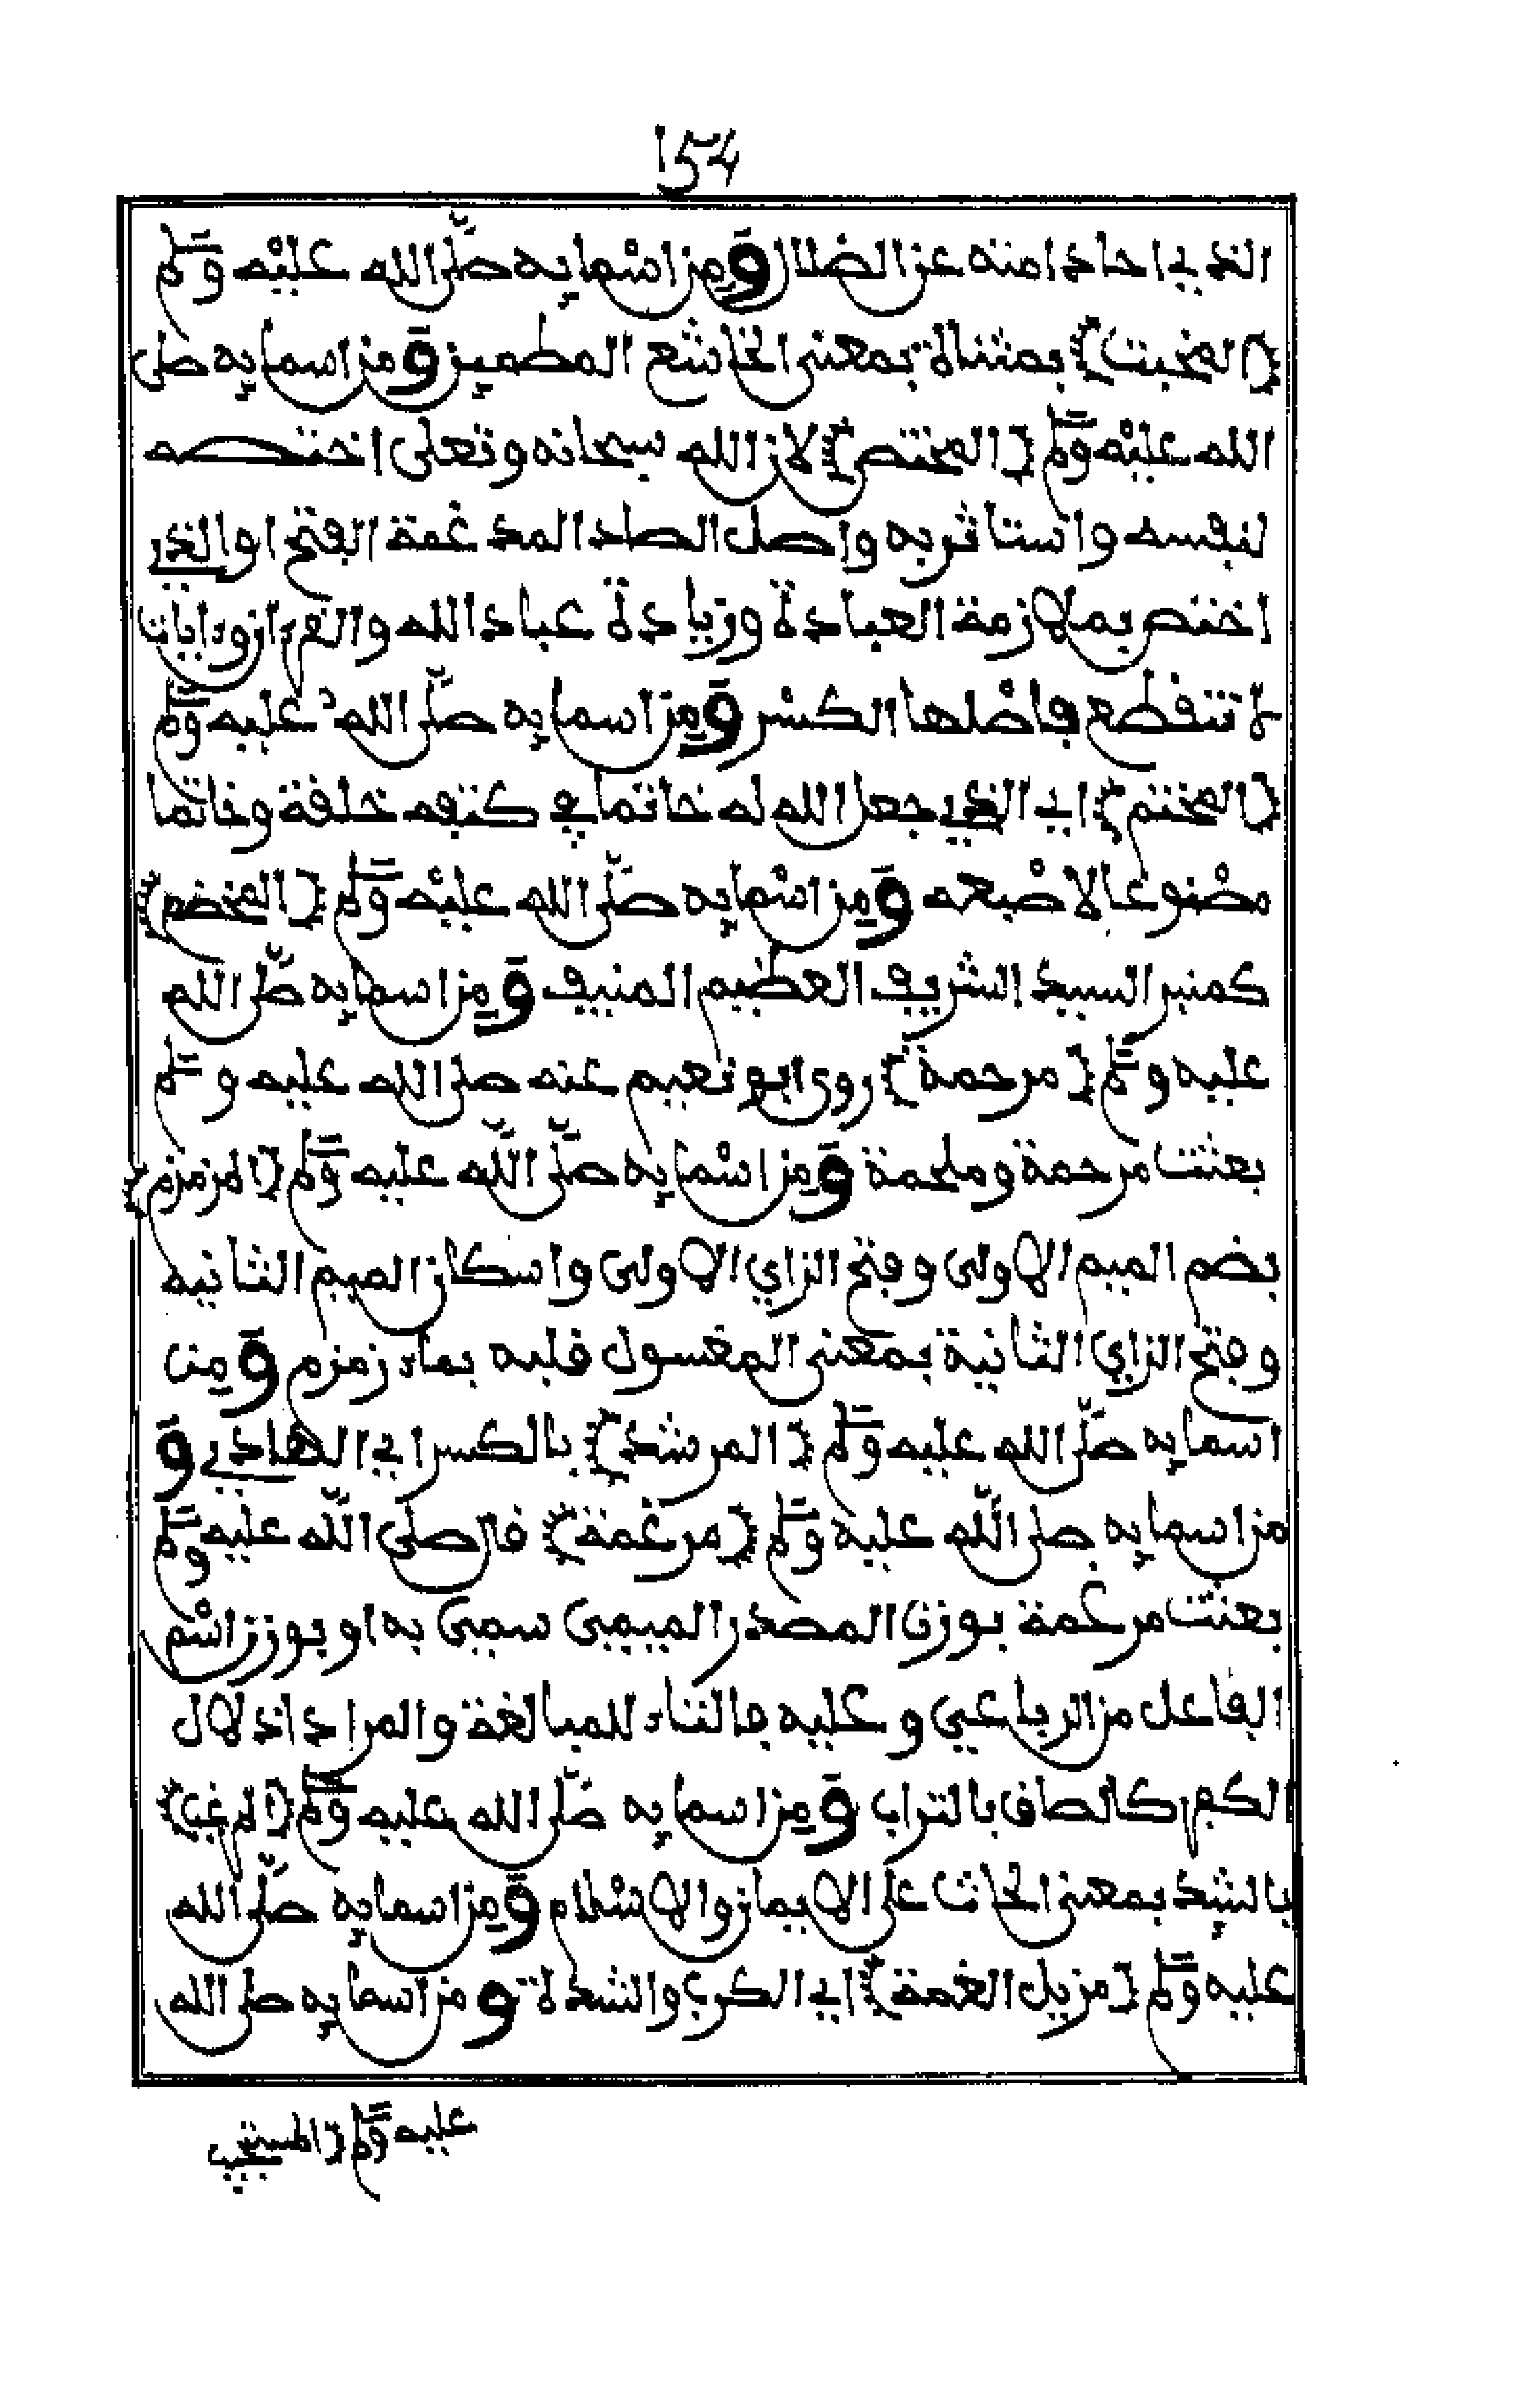 154
الذي احاد امته عن الضلال ومن اسمايه صلى الله عليه وسلم
(المخبت) بمثناة بمعنى الخاشع المطمين ومن اسمايه صلى
الله عليه وسلم (المختص) لان الله سبحانه وتعلى اختصه
لنفسه واستاثر به واصل الصاد المدغمة الفتح او الذي
اختص بملازمة العبادة وزيادة عباد الله والقرءان وءايات
لا تنقطع فاصلها الكسر ومن اسمايه صلى الله عليه وسلم
(المختم) اي الذي جعل الله له خاتما في كتفه خلقة وخاتما
مصنوعا لاصبعه ومن اسمايه صلى الله عليه وسلم (المخضم)
كمنبر السيد الشريف العظيم المنيف ومن اسمايه صلى الله
عليه وسلم (مرحمة) روى ابو نعيم عنه صلى الله عليه وسلم
بعثت مرحمة وملحمة ومن اسمايه صلى الله عليه وسلم (المزمزم)
بضم الميم الاولى وفتح الزاي الاولى واسكان الميم الثانيه
وفتح الزاي الثانية بمعنى المغسول قلبه بماء زمزم ومن
اسمايه صلى الله عليه وسلم (المرشد) بالكسر اي الهادي و
من اسمايه صلى الله عليه وسلم (مرغمة) قال صلى الله عليه وسلم
بعثت مرغمة بوزن المصدر الميمي سمي به او بوزن اسم
الفاعل من الرباعي وعليه فالتاء للمبالغة والمراد اذلال
الكفر كالصاق بالتراب ومن اسمايه صلى الله عليه وسلم (المرغب)
بالشد بمعنى الحاث على الايمان والاسلام ومن اسمايه صلى الله
عليه وسلم (مزيل الغمة) اي الكرب والشدة ومن اسمايه صلى الله
عليه وسلم (المستجيب